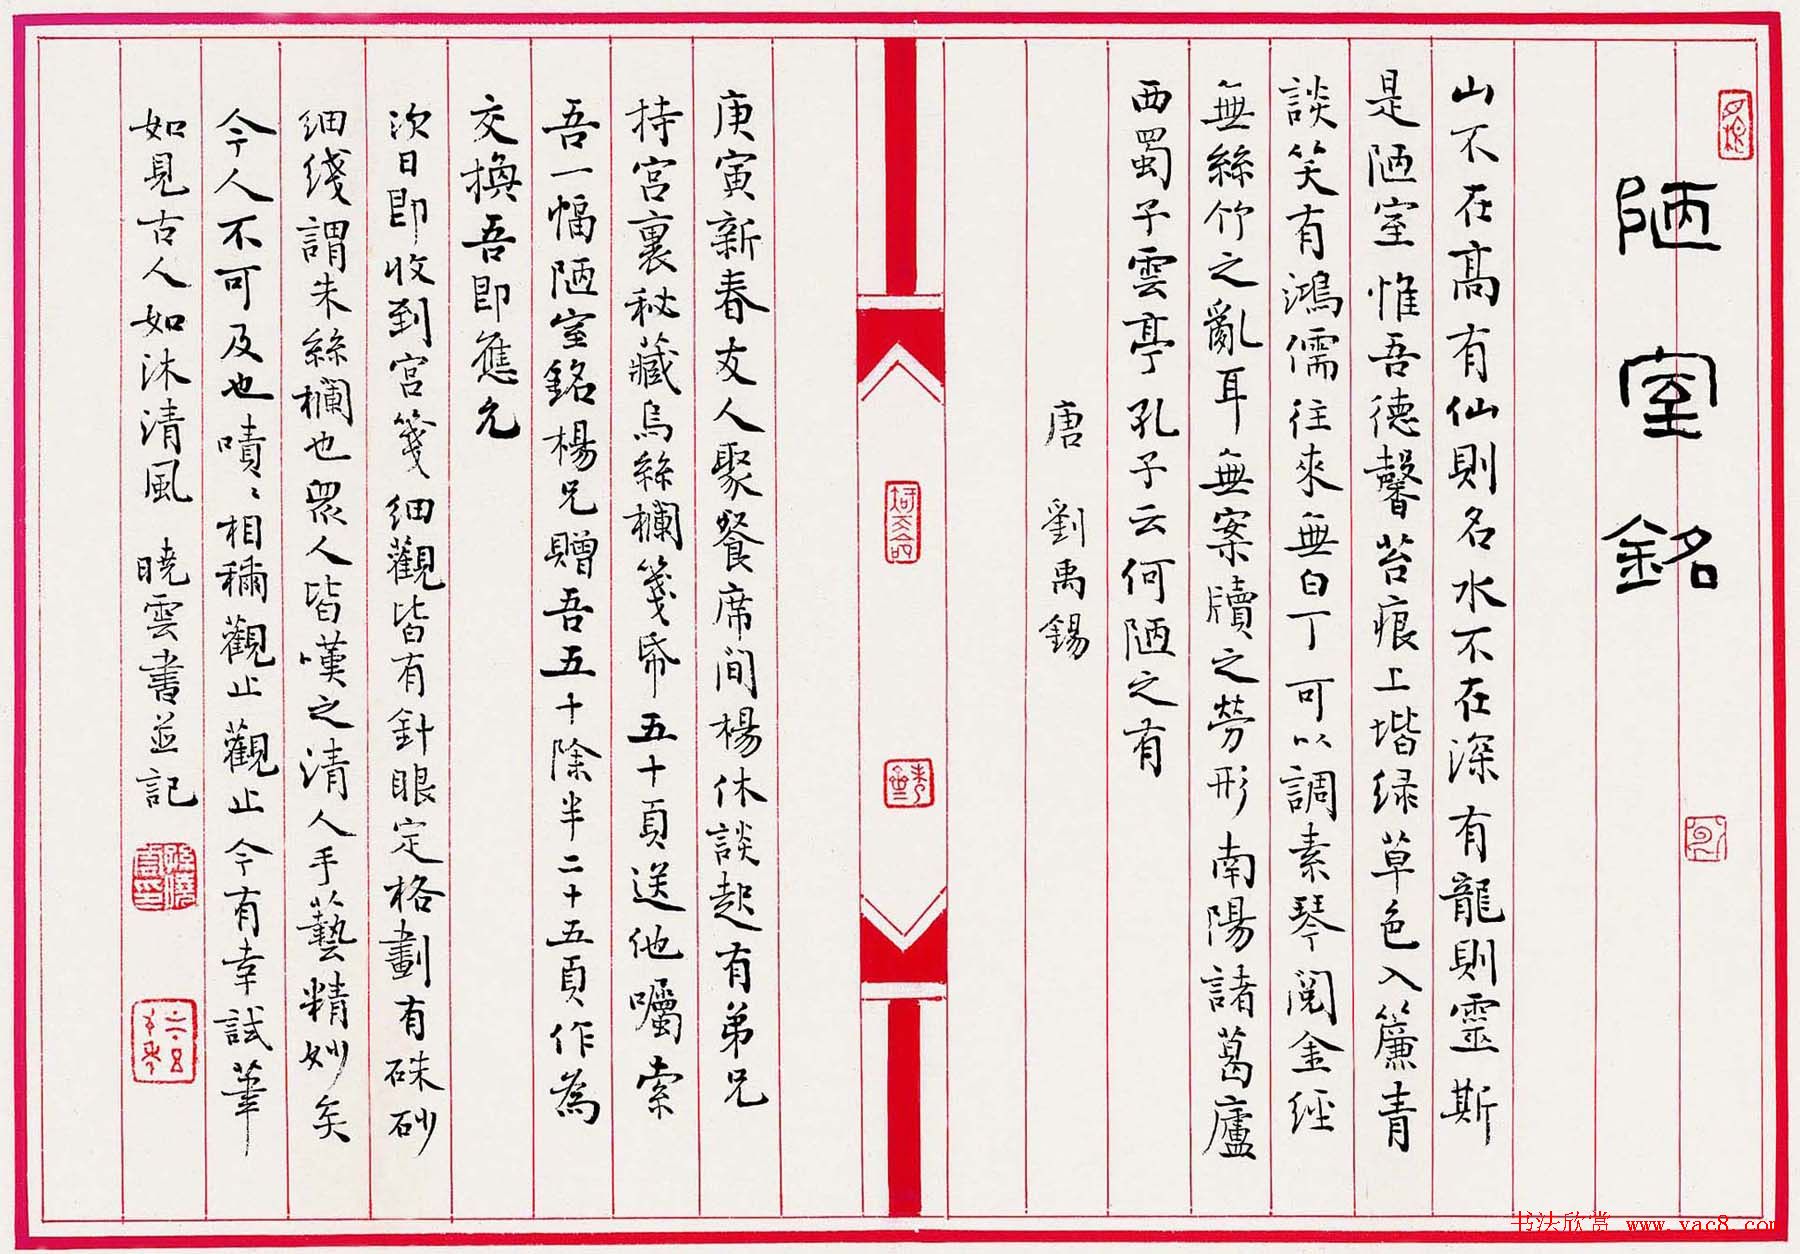 陋室銘
山不在高有仙則名水不在深有龍則靈斯
是陋室惟吾德馨苔痕上堦绿草色入簾青
談笑有鴻儒往來無白丁可以調素琴閲金经
無絲竹之亂耳無案牘之勞形南陽諸葛廬
西蜀子雲亭孔子云何陋之有
唐 劉禹錫
庚寅新春友人聚餐席间楊休談起有弟兄
持宫裏秘藏烏絲欄箋帋五十頁送他囑索
吾一幅陋室銘楊兄贈吾五十除半二十五頁作為
交換吾即應允
次日即收到宫箋细觀皆有針眼定格劃有硃砂
细线謂朱絲欄也眾人皆嘆之清人手藝精妙矣
今人不可及也嘖嘖相稱觀止觀止今有幸試筆
如見古人如沐清風 曉雲書並記
书法欣赏 www.yac8.com